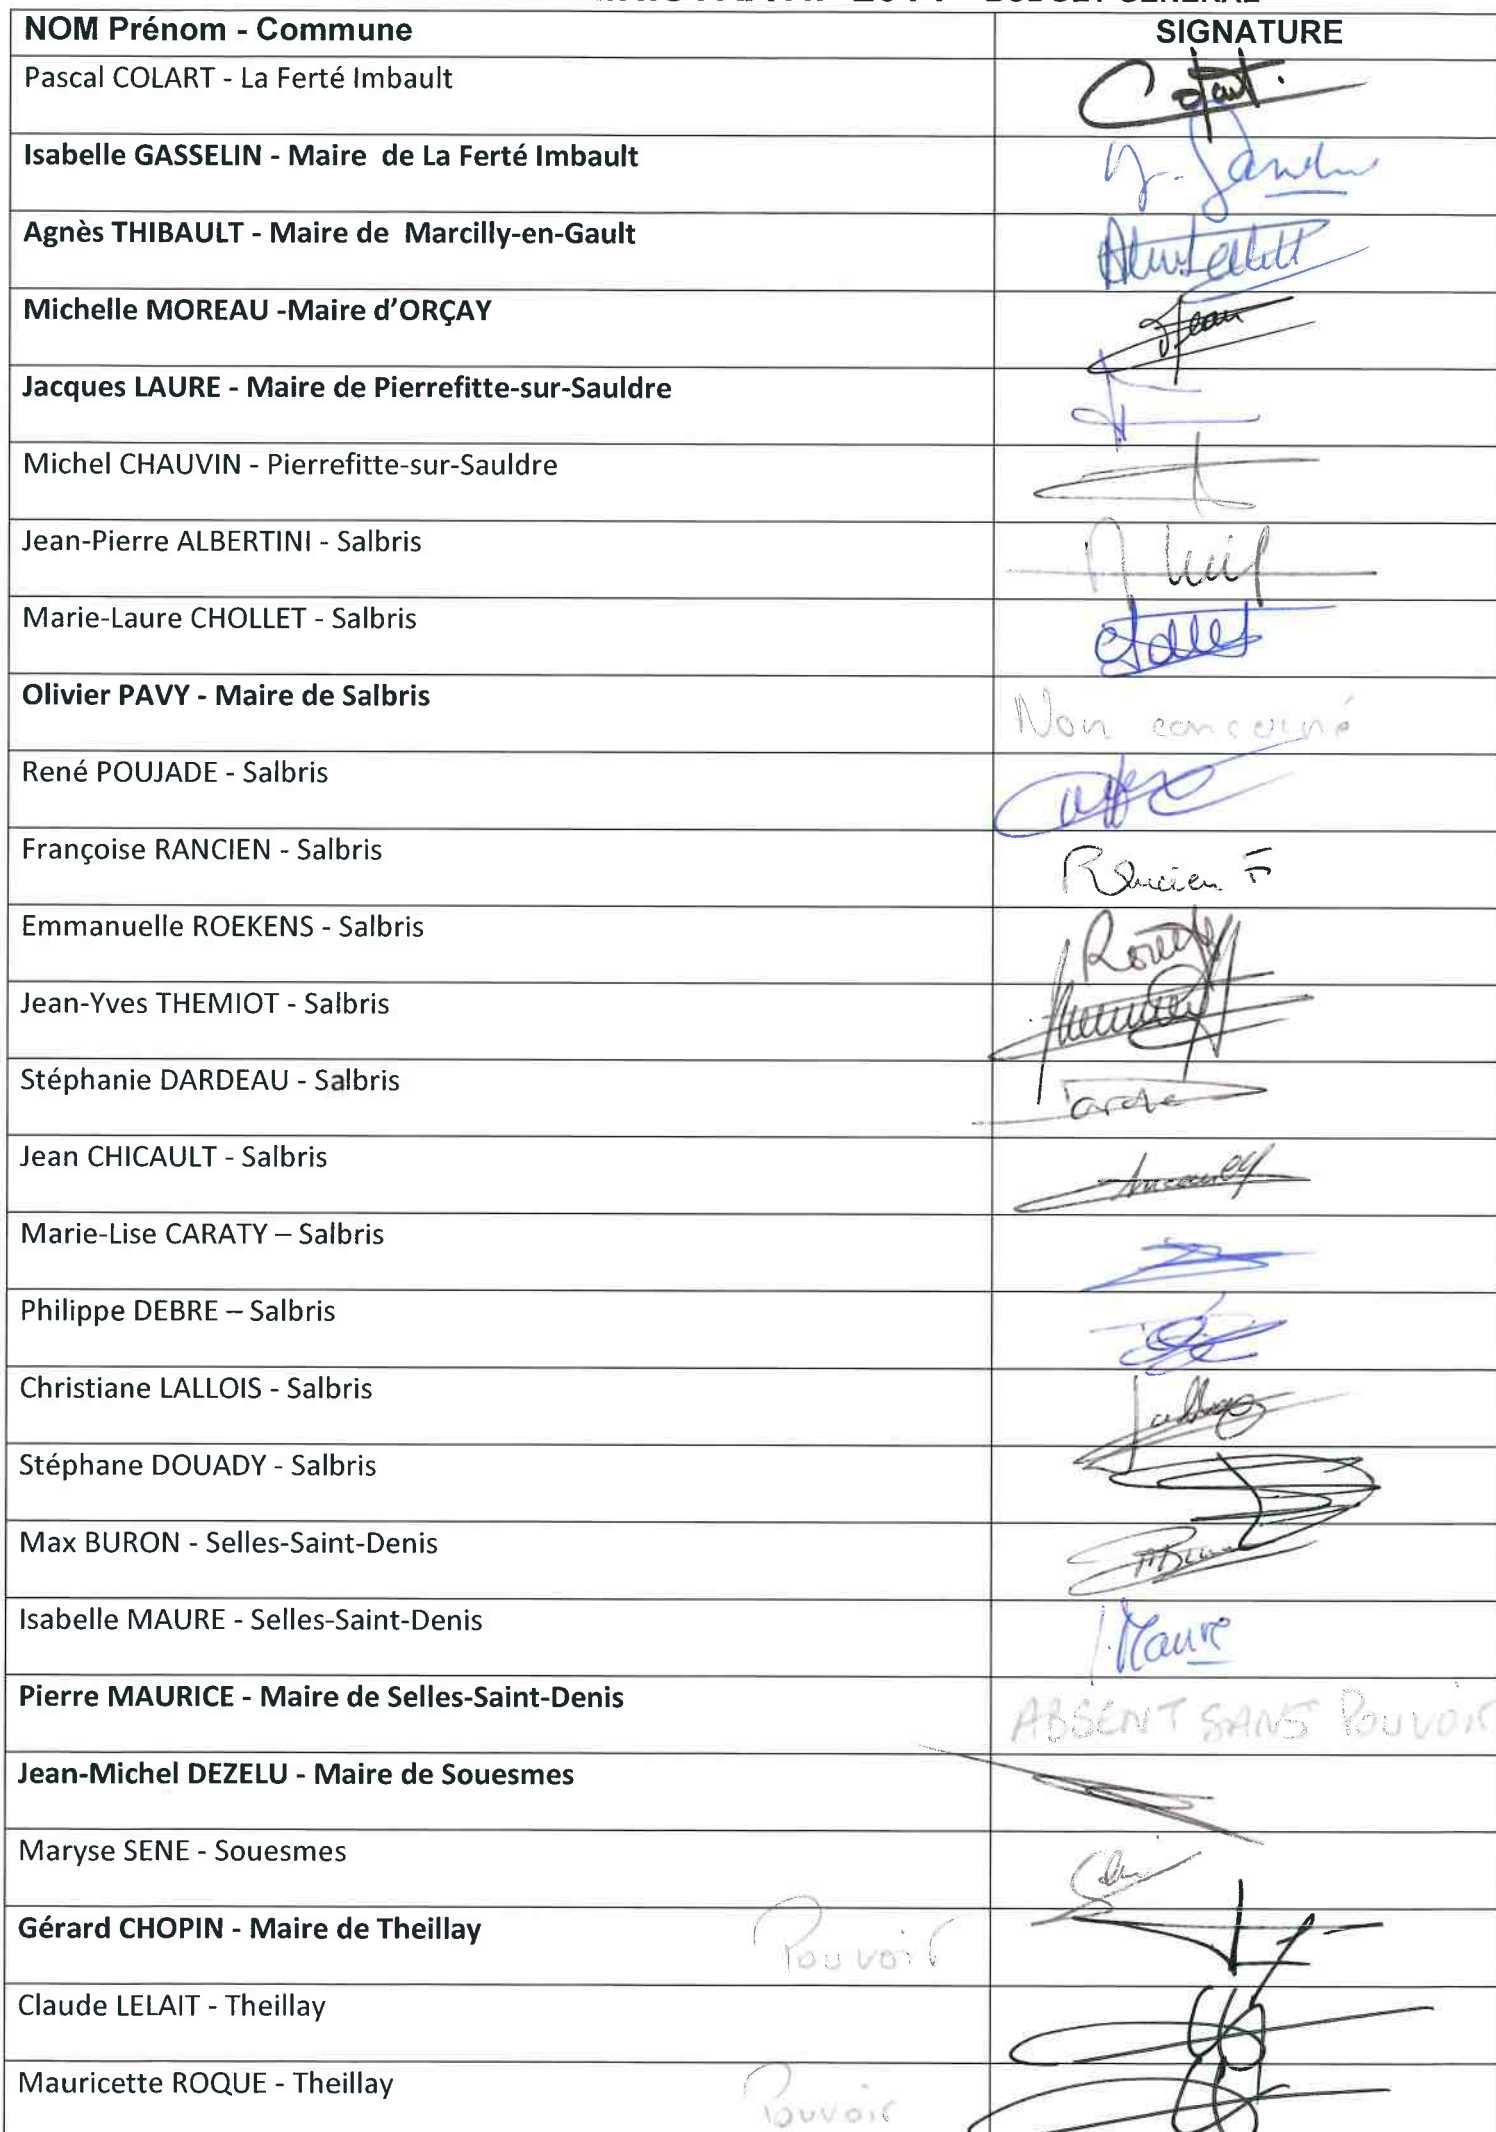 BUDGET GENERAL
NOM Prénom - Commune SIGNATURE
Pascal COLART - La Ferté Imbault
Isabelle GASSELIN - Maire de La Ferté Imbault
Agnès THIBAULT - Maire de Marcilly-en-Gault
Michelle MOREAU -Maire d'ORÇAY
Jacques LAURE - Maire de Pierrefitte-sur-Sauldre
Michel CHAUVIN - Pierrefitte-sur-Sauldre
Jean-Pierre ALBERTINI - Salbris
Marie-Laure CHOLLET - Salbris
Olivier PAVY - Maire de Salbris Non concerné
René POUJADE - Salbris
Françoise RANCIEN - Salbris Rancien F
Emmanuelle ROEKENS - Salbris
Jean-Yves THEMIOT - Salbris
Stéphanie DARDEAU - Salbris
Jean CHICAULT - Salbris
Marie-Lise CARATY – Salbris
Philippe DEBRE – Salbris
Christiane LALLOIS - Salbris
Stéphane DOUADY - Salbris
Max BURON - Selles-Saint-Denis
Isabelle MAURE - Selles-Saint-Denis I. Maure
Pierre MAURICE - Maire de Selles-Saint-Denis ABSENT SANS POUVOIR
Jean-Michel DEZELU - Maire de Souesmes
Maryse SENE - Souesmes
Gérard CHOPIN - Maire de Theillay Pouvoir
Claude LELAIT - Theillay
Mauricette ROQUE - Theillay Pouvoir